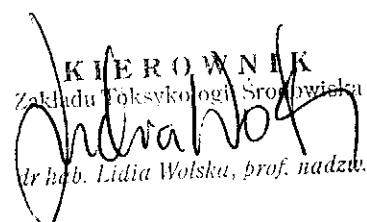 KIEROWNIK
Zakładu Toksykologii Środowiska
dr hab. Lidia Wolska, prof. nadzw.